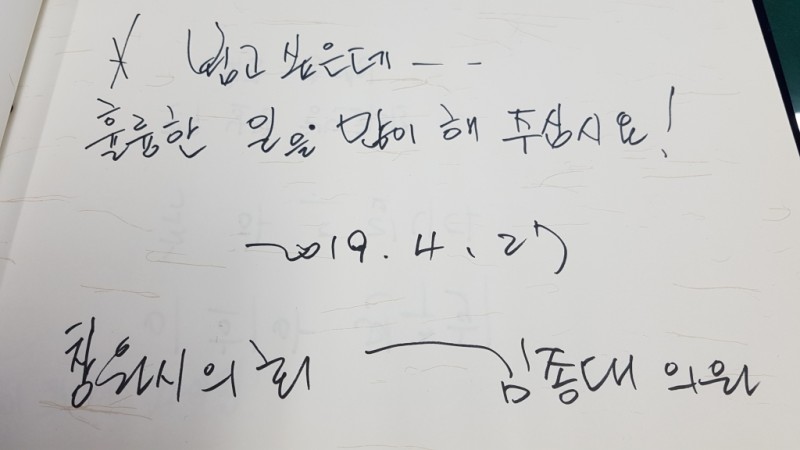 * 높은데 - -
훌륭한 일을 많이 해 주십시요!
2019. 4. 27
창원시의회 김종대 의원